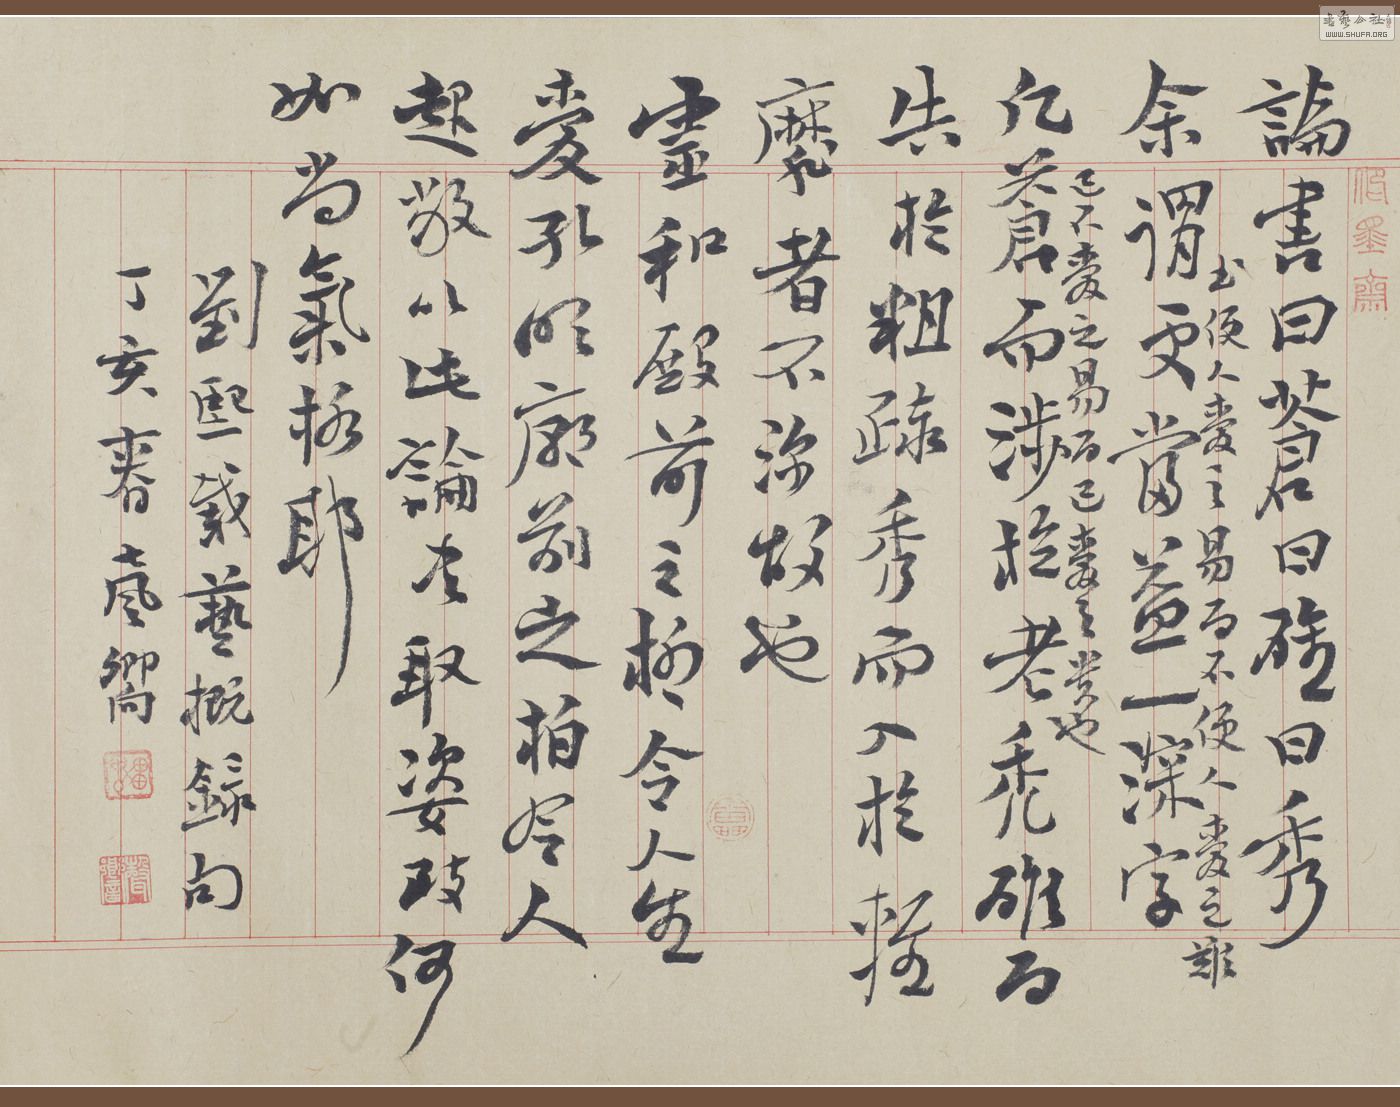 論書曰蒼曰雄曰秀
書便人愛之易而不便人愛之難
余謂更當益一深字
己不愛之易而己愛之貴也
凡蒼而涉於老禿雄而
失於粗疎秀而入於輕
靡者不深故也
靈和殿前之柳令人生
愛孔明廟前之柏令人
起敬以此論書取姿致何
如尚氣格耶
劉熙載藝概錄句
丁亥春
書藝公社
WWW.SHUFA.ORG